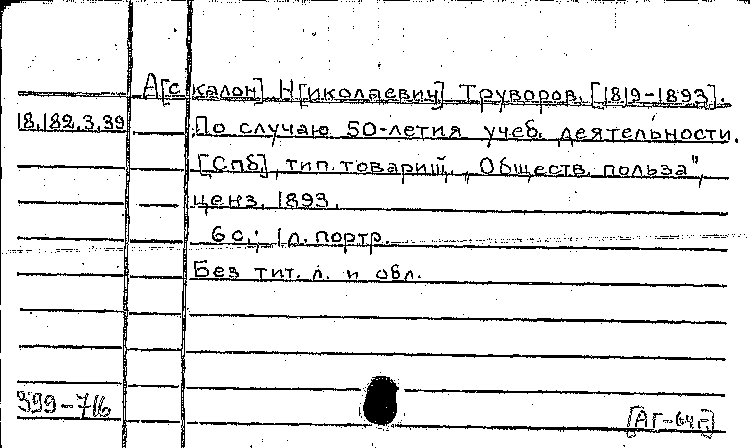 А[скалон] Н[иколаевич] Труворов. [1819-1893].
18.182.3.39 По случаю 50-летия учеб. деятельности.
[Спб], тип. товарищ. „Обществ. польза",
ценз. 1893.
6 с.; 1 л. портр.
Без тит. л. и обл.
399-716